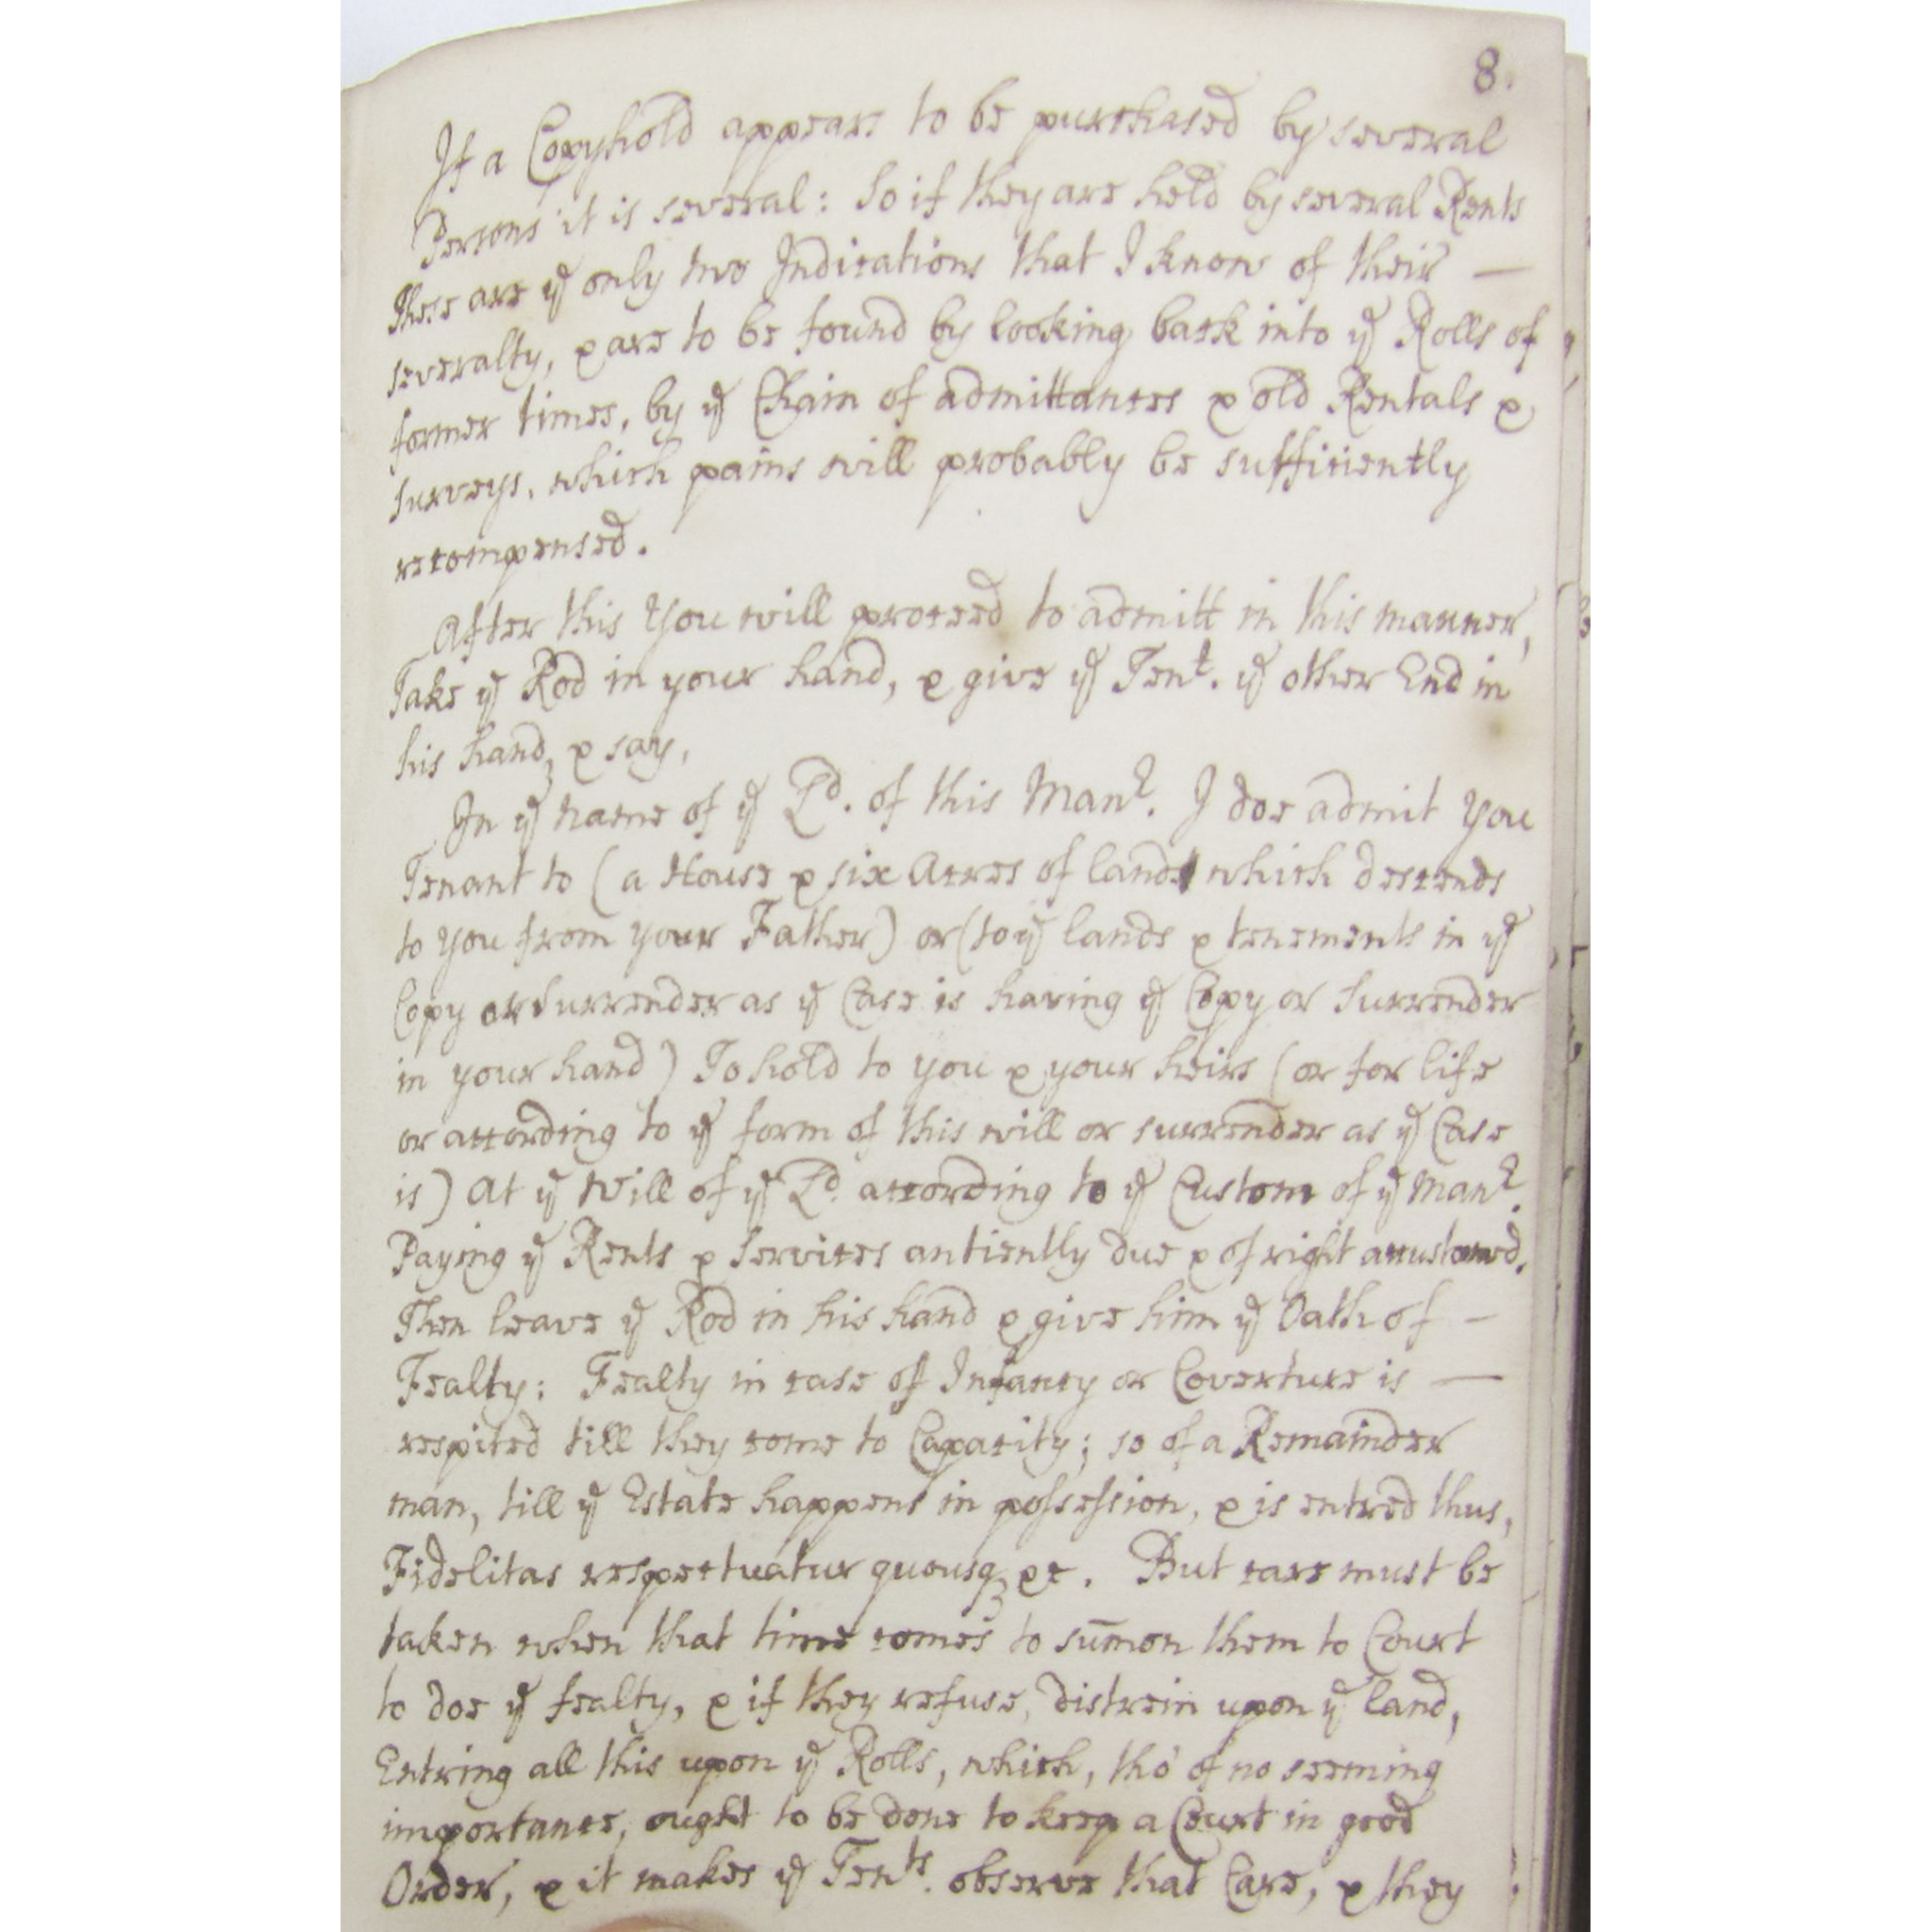 8.
If a Copyhold appears to be purchased by several
Persons it is several: So if they are held by several Rents
These are ye only two Indications that I know of their —
severalty, & are to be found by looking back into ye Rolls of
former times, by ye Chain of admittances & old Rentals &
Surveys, which pains will probably be sufficiently
recompensed.
After this You will proceed to admitt in this manner,
Take ye Rod in your hand, & give ye Tent. ye other End in
his hand, & say,
In ye Name of ye Ld. of this Manr. I doe admit You
Tenant to (a House & six Acres of land which descends
to you from your Father) or (to ye lands & tenements in ye
Copy or Surrender as ye Case is having ye Copy or Surrender
in your hand) To hold to you & your heirs (or for life
or according to ye form of this will or surrender as ye Case
is) At ye Will of ye Ld. according to ye Custom of ye Manr.
Paying ye Rents & Services antiently due & of right accustomed.
Then leave ye Rod in his hand & give him ye Oath of —
Fealty: Fealty in case of Infancy or Coverture is —
respited till they come to Capacity; so of a Remainder
man, till ye Estate happens in possession, & is entred thus,
Fidelitas respectuatur quousq &c. But care must be
taken when that time comes to sūmon them to Court
to doe ye fealty, & if they refuse, distrein upon ye land,
Entring all this upon ye Rolls, which, tho' of no seeming
importance, ought to be done to keep a Court in good
Order, & it makes ye Tents. observe that Care, & they